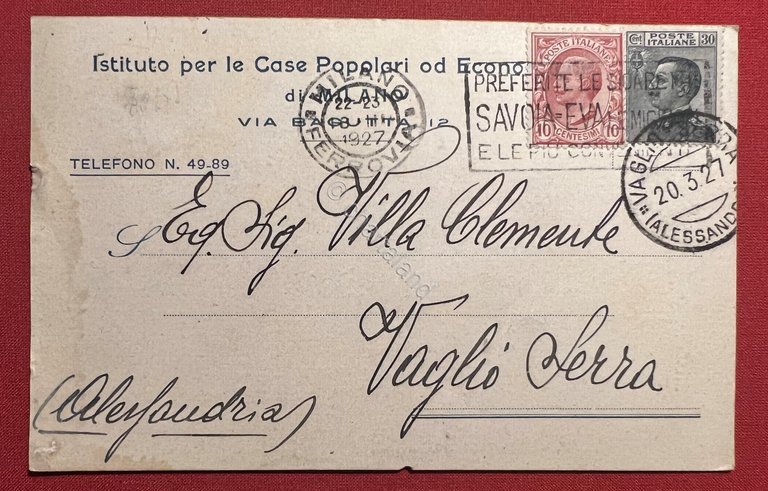 Istituto per le Case Popolari od Econo
di MILANO
VIA BAGUTTA, 12
TELEFONO N. 49-89
MILANO
22-23
1927
FERROVIA
PREFERITE LE
SAVOIA=EVA
E LE PIÙ
POSTE ITALIANE
10 CENTESIMI 10
Cent 30
POSTE ITALIANE
VAGLIO SERRA
20.3.27
(ALESSANDR
Eg. Sig. Villa Clemente
Vaglio Serra
(Alessandria)